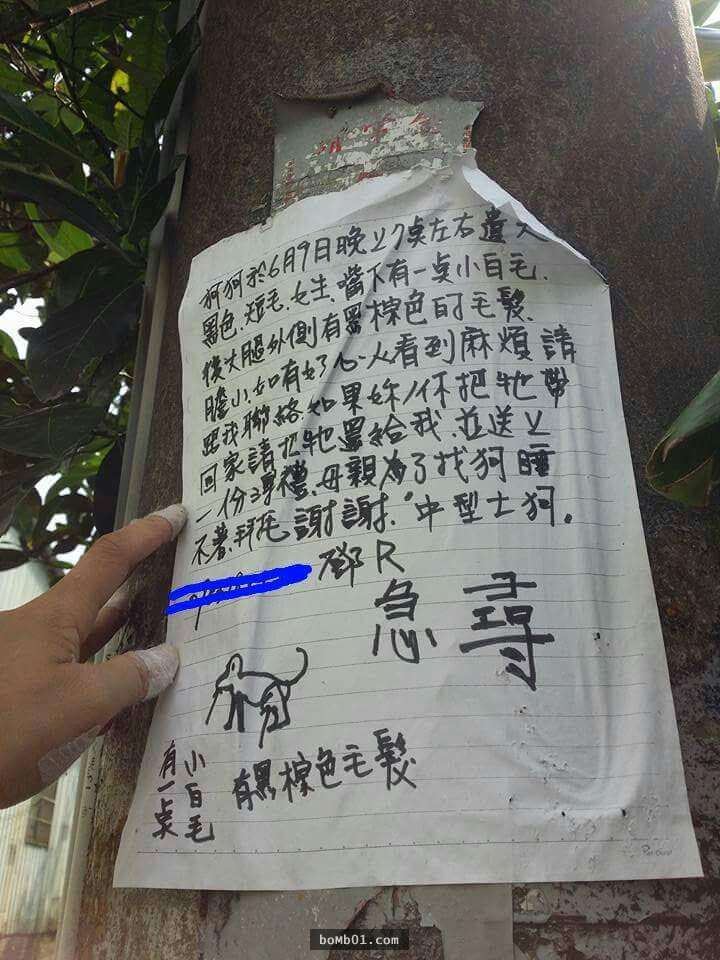 狗狗於6月9日晚上7点左右遺失
黑色.短毛.女生.嘴下有一点小白毛.
後大腿外側有黑棕色的毛髮.
膽小.如有好心人看到麻煩請
跟我聯絡.如果妳/你把牠帶
回家請把牠還給我.並送上
一份厚禮.母親為了找狗睡
不著.拜托謝謝."中型土狗。
鄧R
急尋
有一点
小白毛
有黑棕色毛髮
boMb01.com